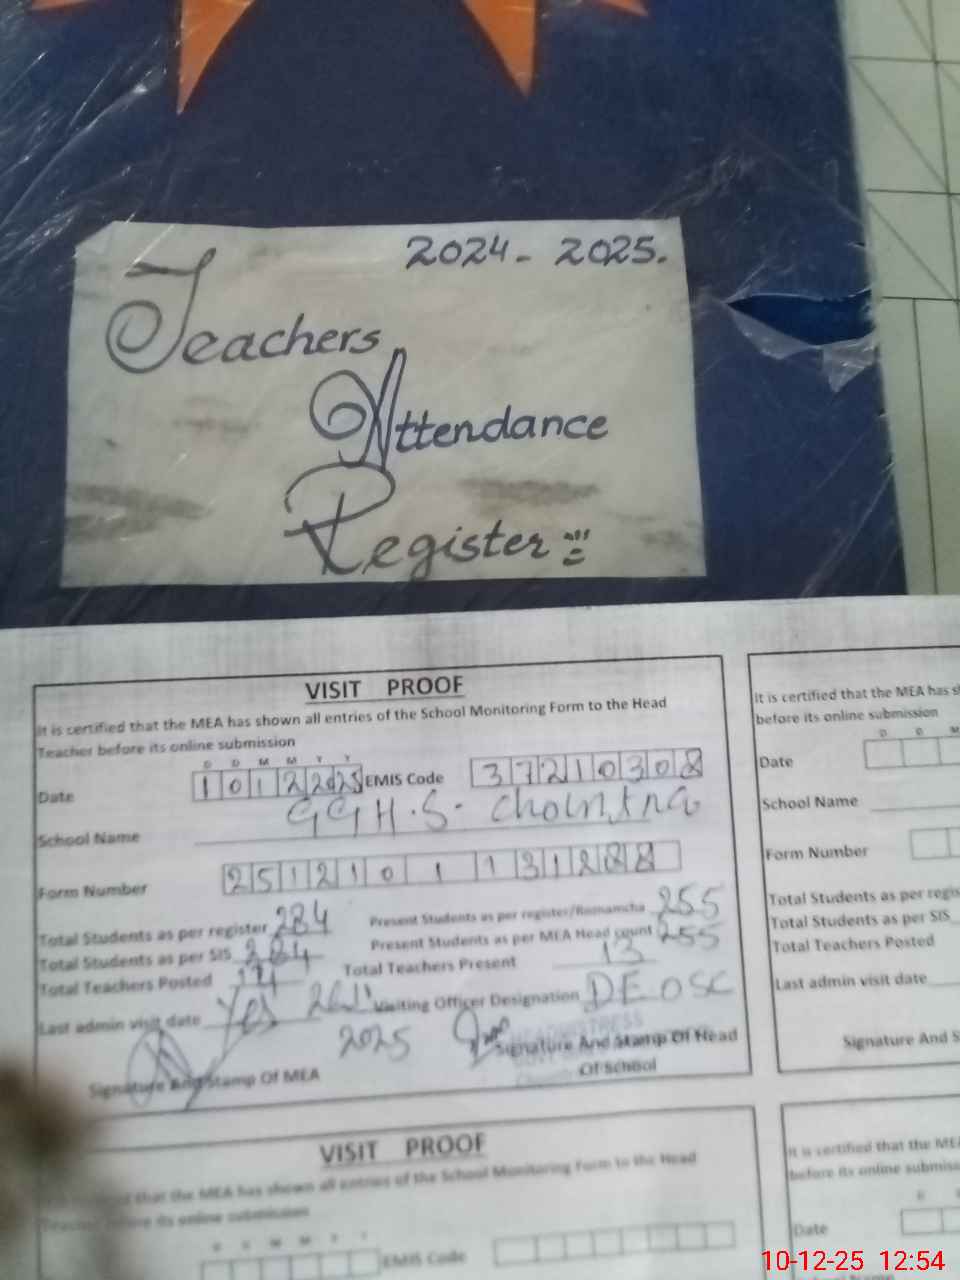 2024 - 2025.
Teachers
Attendance
Register
VISIT PROOF
It is certified that the MEA has shown all entries of the School Monitoring Form to the Head
Teacher before its online submission
D D M M Y Y
Date 10122025 EMIS Code 37210308
School Name GGH.S. Chountra
Form Number 251210113128
Total Students as per register 284 Present Students as per register/Roznamcha 255
Total Students as per SIS 284 Present Students as per MEA Head count 255
Total Teachers Posted 14 Total Teachers Present 13
Last admin visit date Yes Visiting Officer Designation DEOSC
2025
Signature And Stamp Of MEA Signature And Stamp Of Head
Of School
It is certified that the MEA has
before its online submission
D D M
Date
School Name
Form Number
Total Students as per
Total Students as per SIS
Total Teachers Posted
Last admin visit date
Signature And
VISIT PROOF
that the MEA has shown all entries of the School Monitoring Form to the Head
before its online submission
EMIS Code
It is certified that the
before its online
Date
10-12-25 12:54